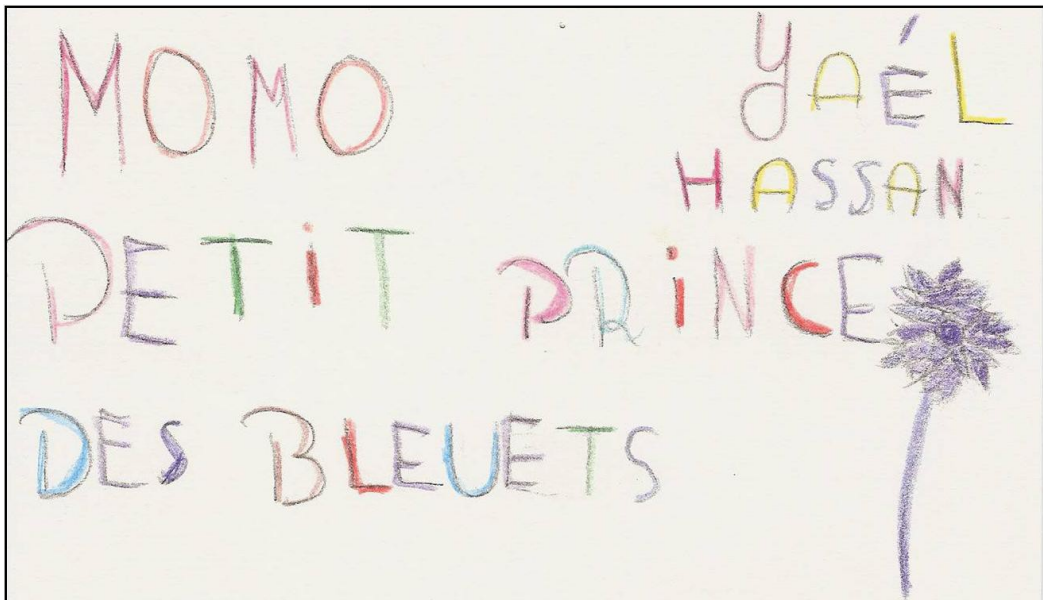 MOMO
YAÉL
HASSAN
PETiT PRiNCE
DES BLEUETS